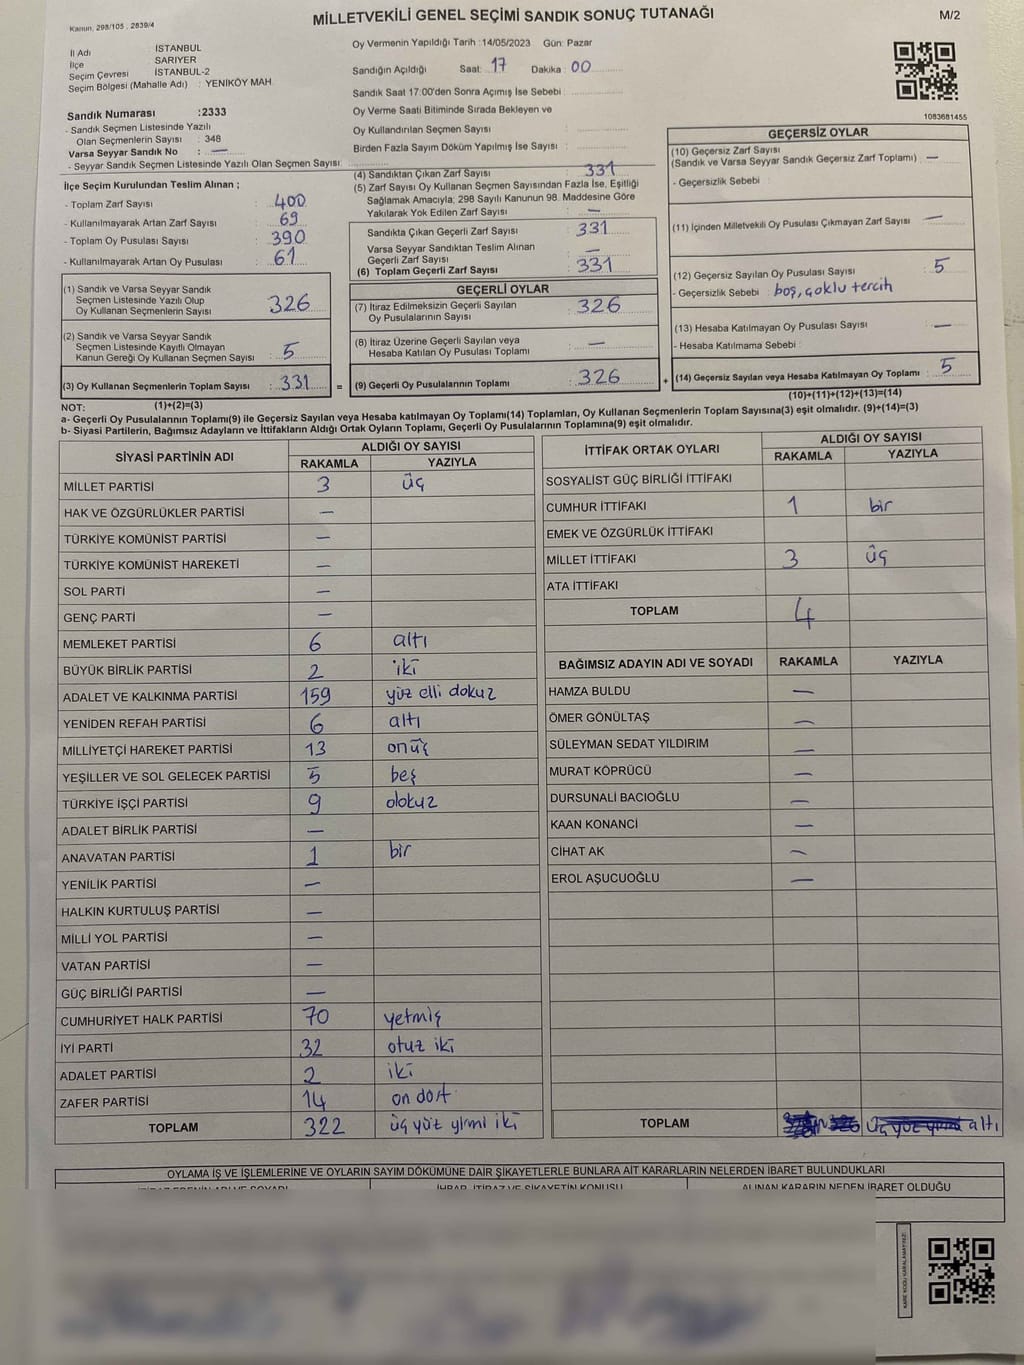 Kanun, 298/105 , 2839/4
MİLLETVEKİLİ GENEL SEÇİMİ SANDIK SONUÇ TUTANAĞI
M/2
İl Adı İSTANBUL
İlçe SARIYER
Seçim Çevresi İSTANBUL-2
Seçim Bölgesi (Mahalle Adı) : YENİKÖY MAH.
Sandık Numarası :2333
- Sandık Seçmen Listesinde Yazılı
Olan Seçmenlerin Sayısı : 348
Varsa Seyyar Sandık No : —
- Seyyar Sandık Seçmen Listesinde Yazılı Olan Seçmen Sayısı:
Oy Vermenin Yapıldığı Tarih :14/05/2023 Gün: Pazar
Sandığın Açıldığı Saat: 17 Dakika : 00
Sandık Saat 17:00'den Sonra Açımış İse Sebebi :
Oy Verme Saati Bitiminde Sırada Bekleyen ve
Oy Kullandırılan Seçmen Sayısı :
Birden Fazla Sayım Döküm Yapılmış İse Sayısı :
1083681455
İlçe Seçim Kurulundan Teslim Alınan ;
- Toplam Zarf Sayısı : 400
- Kullanılmayarak Artan Zarf Sayısı : 69
- Toplam Oy Pusulası Sayısı : 390
- Kullanılmayarak Artan Oy Pusulası : 61
(1) Sandık ve Varsa Seyyar Sandık
Seçmen Listesinde Yazılı Olup
Oy Kullanan Seçmenlerin Sayısı : 326
(2) Sandık ve Varsa Seyyar Sandık
Seçmen Listesinde Kayıtlı Olmayan
Kanun Gereği Oy Kullanan Seçmen Sayısı : 5
(3) Oy Kullanan Seçmenlerin Toplam Sayısı : 331
(1)+(2)=(3)
(4) Sandıktan Çıkan Zarf Sayısı : 331
(5) Zarf Sayısı Oy Kullanan Seçmen Sayısından Fazla İse, Eşitliği
Sağlamak Amacıyla; 298 Sayılı Kanunun 98. Maddesine Göre
Yakılarak Yok Edilen Zarf Sayısı : —
Sandıkta Çıkan Geçerli Zarf Sayısı : 331
Varsa Seyyar Sandıktan Teslim Alınan
Geçerli Zarf Sayısı : —
(6) Toplam Geçerli Zarf Sayısı : 331
GEÇERLİ OYLAR
(7) İtiraz Edilmeksizin Geçerli Sayılan
Oy Pusulalarının Sayısı : 326
(8) İtiraz Üzerine Geçerli Sayılan veya
Hesaba Katılan Oy Pusulası Toplamı : —
= (9) Geçerli Oy Pusulalarının Toplamı : 326
GEÇERSİZ OYLAR
(10) Geçersiz Zarf Sayısı
(Sandık ve Varsa Seyyar Sandık Geçersiz Zarf Toplamı) : —
- Geçersizlik Sebebi :
(11) İçinden Milletvekili Oy Pusulası Çıkmayan Zarf Sayısı : —
(12) Geçersiz Sayılan Oy Pusulası Sayısı : 5
- Geçersizlik Sebebi : boş, çoklu tercih
(13) Hesaba Katılmayan Oy Pusulası Sayısı : —
- Hesaba Katılmama Sebebi :
+ (14) Geçersiz Sayılan veya Hesaba Katılmayan Oy Toplamı : 5
(10)+(11)+(12)+(13)=(14)
NOT:
a- Geçerli Oy Pusulalarının Toplamı(9) ile Geçersiz Sayılan veya Hesaba katılmayan Oy Toplamı(14) Toplamları, Oy Kullanan Seçmenlerin Toplam Sayısına(3) eşit olmalıdır. (9)+(14)=(3)
b- Siyasi Partilerin, Bağımsız Adayların ve İttifakların Aldığı Ortak Oyların Toplamı, Geçerli Oy Pusulalarının Toplamına(9) eşit olmalıdır.
SİYASİ PARTİNİN ADI ALDIĞI OY SAYISI
RAKAMLA YAZIYLA
MİLLET PARTİSİ 3 üç
HAK VE ÖZGÜRLÜKLER PARTİSİ —
TÜRKİYE KOMÜNİST PARTİSİ —
TÜRKİYE KOMÜNİST HAREKETİ —
SOL PARTİ —
GENÇ PARTİ —
MEMLEKET PARTİSİ 6 altı
BÜYÜK BİRLİK PARTİSİ 2 iki
ADALET VE KALKINMA PARTİSİ 159 yüz elli dokuz
YENİDEN REFAH PARTİSİ 6 altı
MİLLİYETÇİ HAREKET PARTİSİ 13 onüç
YEŞİLLER VE SOL GELECEK PARTİSİ 5 beş
TÜRKİYE İŞÇİ PARTİSİ 9 dokuz
ADALET BİRLİK PARTİSİ —
ANAVATAN PARTİSİ 1 bir
YENİLİK PARTİSİ —
HALKIN KURTULUŞ PARTİSİ —
MİLLİ YOL PARTİSİ —
VATAN PARTİSİ —
GÜÇ BİRLİĞİ PARTİSİ —
CUMHURİYET HALK PARTİSİ 70 yetmiş
İYİ PARTİ 32 otuz iki
ADALET PARTİSİ 2 iki
ZAFER PARTİSİ 14 on dört
TOPLAM 322 üç yüz yirmi iki
İTTİFAK ORTAK OYLARI ALDIĞI OY SAYISI
RAKAMLA YAZIYLA
SOSYALİST GÜÇ BİRLİĞİ İTTİFAKI
CUMHUR İTTİFAKI 1 bir
EMEK VE ÖZGÜRLÜK İTTİFAKI
MİLLET İTTİFAKI 3 üç
ATA İTTİFAKI
TOPLAM 4
BAĞIMSIZ ADAYIN ADI VE SOYADI RAKAMLA YAZIYLA
HAMZA BULDU —
ÖMER GÖNÜLTAŞ —
SÜLEYMAN SEDAT YILDIRIM —
MURAT KÖPRÜCÜ —
DURSUNALİ BACIOĞLU —
KAAN KONANCİ —
CİHAT AK —
EROL AŞUCUOĞLU —
TOPLAM üç yüz yirmi altı
OYLAMA İŞ VE İŞLEMLERİNE VE OYLARIN SAYIM DÖKÜMÜNE DAİR ŞİKAYETLERLE BUNLARA AİT KARARLARIN NELERDEN İBARET BULUNDUKLARI
İTİRAZ EDENİN ADI VE SOYADI İHBAR, İTİRAZ VE ŞİKAYETİN KONUSU ALINAN KARARIN NEDEN İBARET OLDUĞU